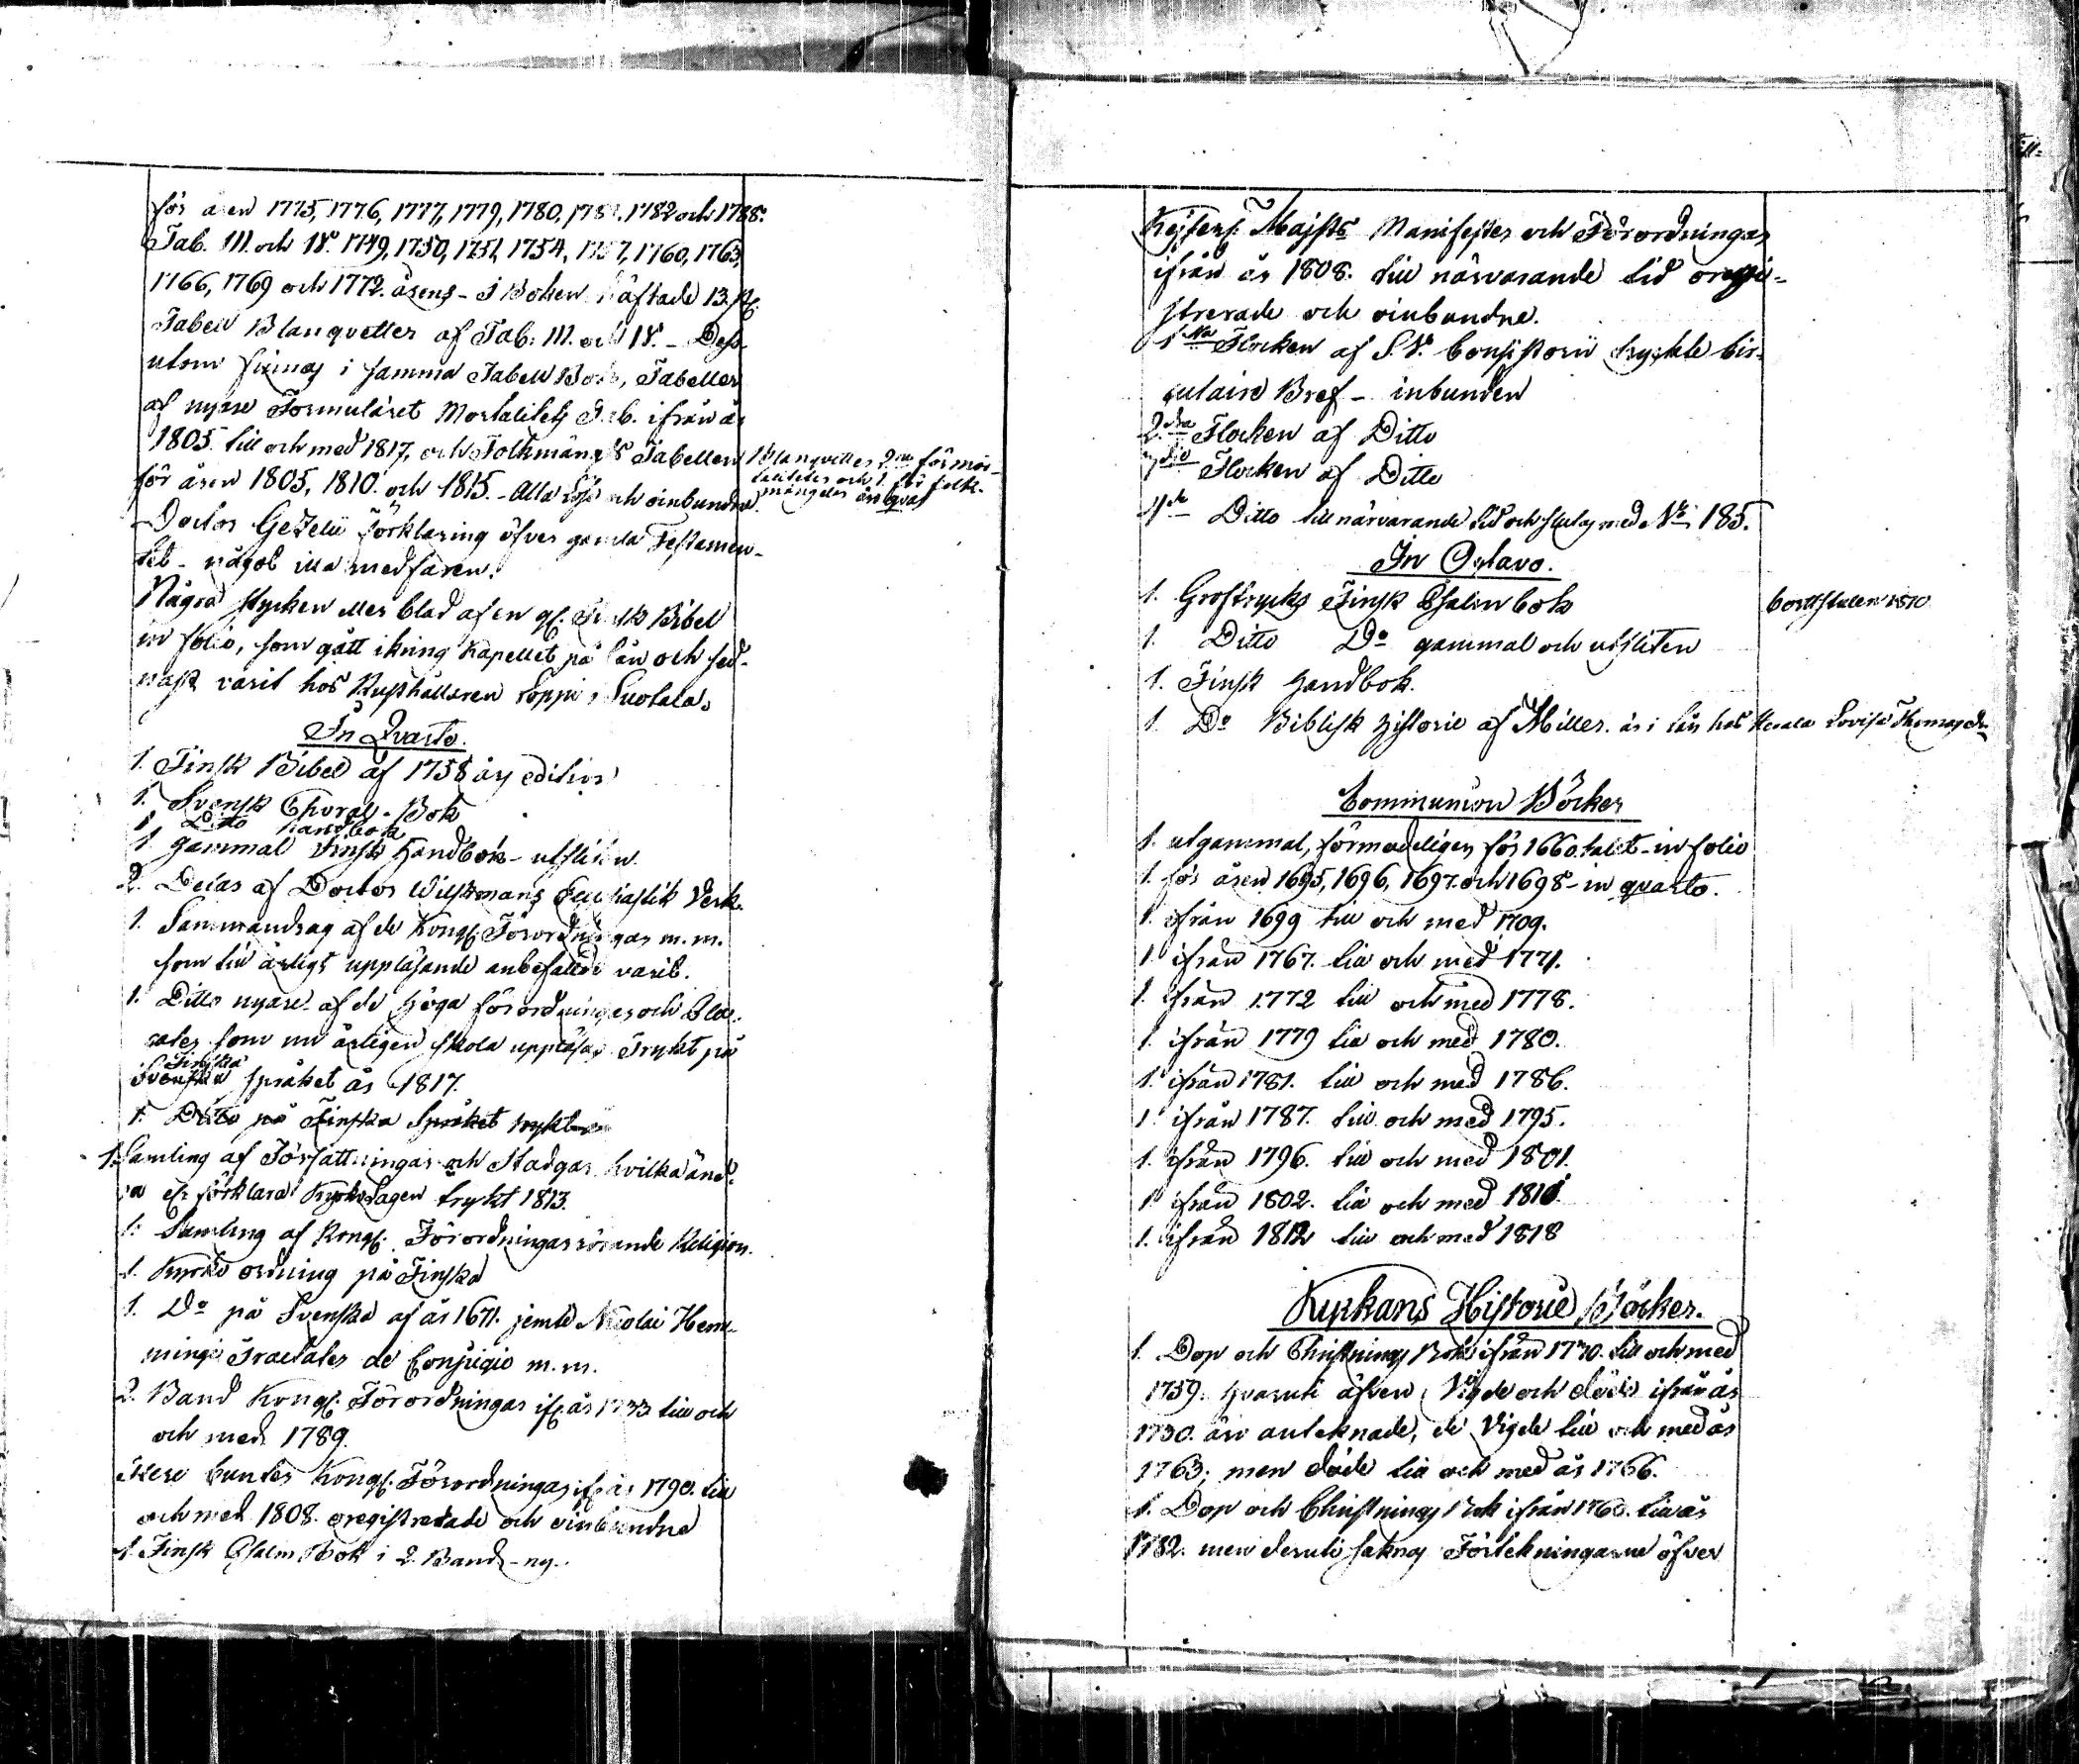 för åren 1775, 1776, 1777, 1779, 1780, 178 , 1782 och 1788.
Tab. III. och IV. 1749, 1750, 1751, 1754, 1757, 1760, 1763,
1766, 1769 och 1772. årens - I Boken häftade 13. st.
Tabell Blanquetter af Tab: III. och IV. - Dess-
utom finnas i samma Tabell Bok, Tabeller
af nyare Formuläret Mortalitets Tab. ifrån år
1805. till och med 1817, och Folkmängds Tabellen
för åren 1805, 1810. och 1815. - Alla lösa och oinbundne.
Blanquetter 2ne för mor-
taliteten och 1. för folk-
mängden äro qvar
Doctor Gezelii Förklaring öfver gamla Testamen-
tet - något illa medfaren.
Några stycken eller blad af en gl. Finsk Bibel
in folio, som gått ikring Kapellet på lån och sed-
nast varit hos Rusthållaren Soppi i Suotala.
In Qvarto.
1. Finsk Bibel af 1758 års edition
1. Svensk Choral-Bok
1 Ditto handbok
1. gammal Finsk Handbok - utsliten
2. Delar af Doctor Wilskmans Ecclesiastik Verk.
1. Sammandrag af de Kongl. Förordningar m. m.
som till årligt uppläsande anbefallde varit.
1. Ditto nyare af de Höga förordningar och Pla-
cater som nu årligen skola uppläsas Tryckt på
Finska
Svenska språket år 1817.
1. Ditto på Finska Språket tryckt
1. Samling af Författningar och Stadgar hvilka änd-
ra el. förklara Kyrkolagen tryckt 1813.
1. Samling af Kongl. Förordningar rörande Religion.
1. Kyrko ordning på Finska
1. Do på Svenska af år 1671. jemte Nicolai Hem-
mingi Tractater de Conjugio m. m.
2. Band Kongl. Förordningar if. år 1733 till och
och med 1789.
Flere buntar Kongl. Förordningar if. år 1790. till
och med 1808. oregistrerade och oinbundne
1. Finsk Psalm Bok i 2. Band - ny.
Kejserl. Majsts Manifester och Förordningar
ifrån år 1808. till närvarande tid oregi-
strerade och oinbundne.
1sta Flocken af S. V. Consistorii tryckte Cir-
culaire Bref - inbunden
2.dra Flocken af Ditto
3die Flocken af Ditto
4de Ditto till närvarande tid och slutas med No 185.
In Octavo.
1. Grofstryks Finsk Psalmbok
bortstulen 1810
1. Ditto Do gammal och utsliten
1. Finsk Handbok.
1. Do Biblisk Historie af Miller. är i lån hos Lovisa
Communion Böcker
1. utgammal, förmodeligen för 1660. talet - in folio
1. för åren 1695, 1696, 1697. och 1698 - in qvarto.
1. ifrån 1699 till och med 1709.
1. ifrån 1767. till och med 1771.
1. ifrån 1772 till och med 1778.
1. ifrån 1779 till och med 1780.
1. ifrån 1781. till och med 1786.
1. ifrån 1787. till och med 1795.
1. ifrån 1796. till och med 1801.
1. ifrån 1802. till och med 1811.
1. ifrån 1812 till och med 1818
Kyrkans Historie Böcker.
1. Dop och Christnings Bok ifrån 1730. till och med
1759. hvaruti äfven Vigde och döde ifrån år
1730. äro antecknade, de Vigde till och med år
1763; men döde till och med år 1766.
1. Dop och Christnings Bok ifrån 1760. till år
1782. men deruti saknas Förtekningarne öfver